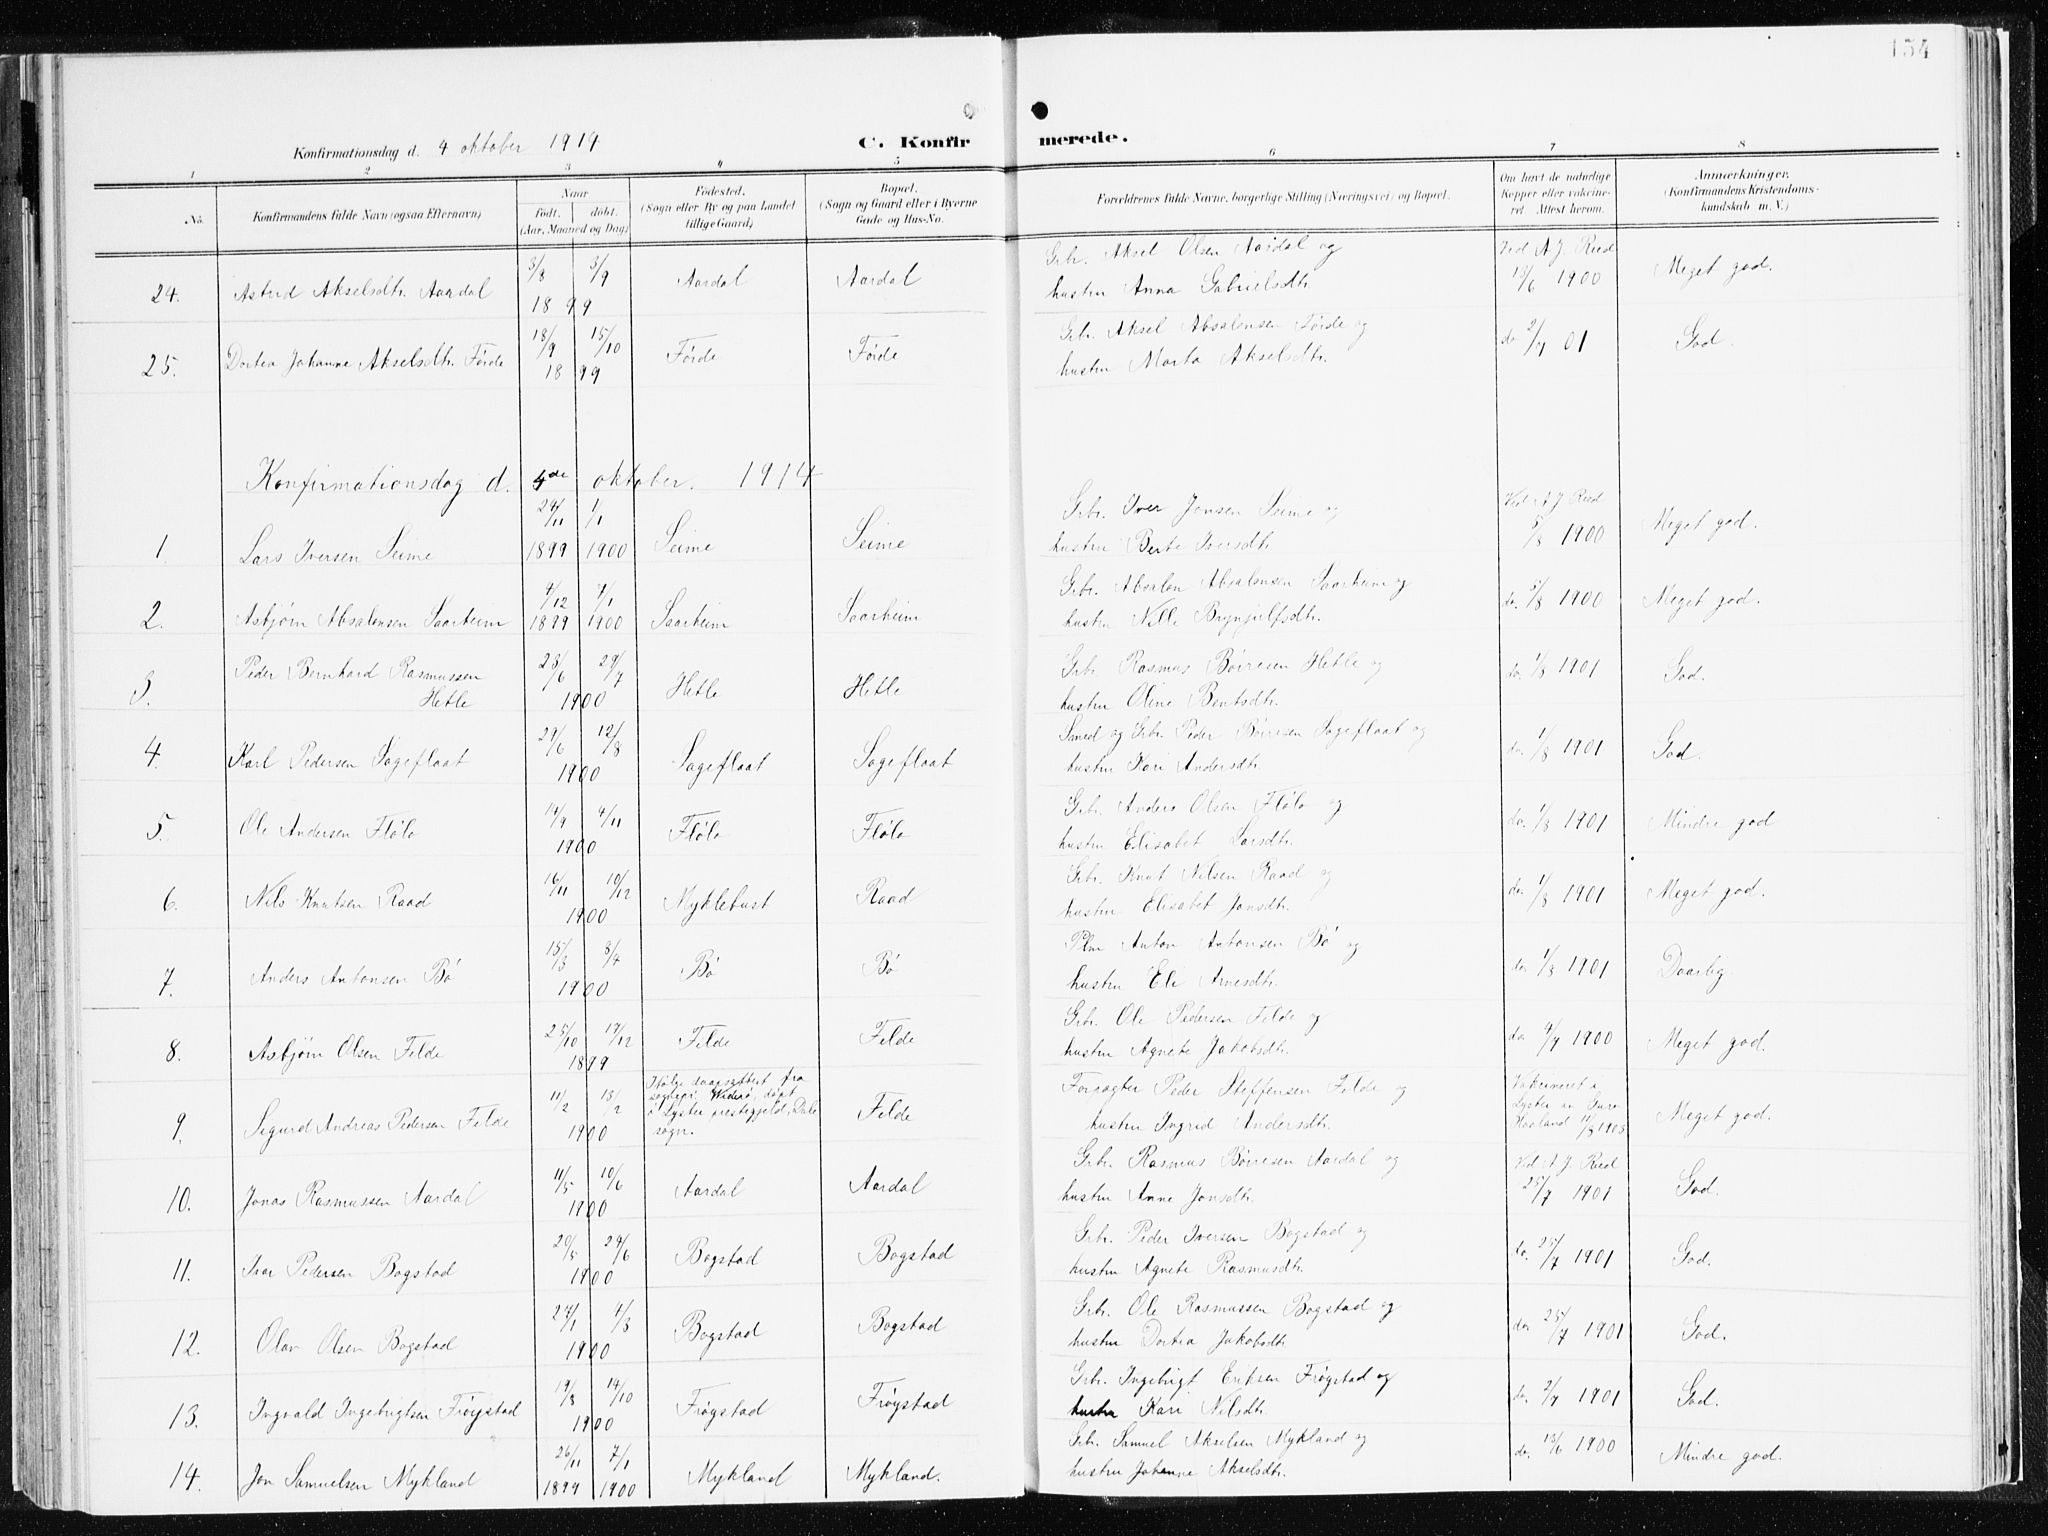 154
Konfirmationsdag d. 4 oktober 1914
C. Konfirmerede.
1 2 3 4 5 6 7 8
No.
Konfirmandens fulde Navn (ogsaa Efternavn)
Naar
født. døbt.
(Aar, Maaned og Dag)
Fødested.
(Sogn eller By og paa Landet
tillige Gaard)
Bopæl.
(Sogn og Gaard eller i Byerne
Gade og Hus-No.
Forældrenes fulde Navne, borgerlige Stilling (Næringsvei) og Bopæl.
Om havt de naturlige
Kopper eller vakcine-
ret Attest herom.
Anmærkninger.
(Konfirmandens Kristendoms-
kundskab m. V.)
24. Astrid Akselsdtr. Aardal 3/8 3/9 1899 Aardal Aardal Grbr. Aksel Olsen Aardal og
hustru Anna Gabrielsdtr. Ved A J Reed 13/6 1900 Meget god.
25. Dortea Johanne Akselsdtr. Førde 18/9 15/10 1899 Førde Førde Grbr. Aksel Absalonsen Førde og
hustru Marta Akselsdtr. do 2/7 01 God.
Konfirmationsdag d. 4de oktober. 1914
1 Lars Iversen Seime 24/11 1899 1/1 1900 Seime Seime Grbr. Iver Jonsen Seime og
hustru Berte Iversdtr. Ved A J Reed 5/8 1900 Meget god.
2. Asbjørn Absalonsen Saarheim 4/12 1899 7/1 1900 Saarheim Saarheim Grbr. Absalon Absalonsen Saarheim og
hustru Nille Brynjulfsdtr. do. 5/8 1900 Meget god.
3. Peder Bernhard Rasmussen
Hetle 23/6 29/7 1900 Hetle Hetle Grbr. Rasmus Børresen Hetle og
hustru Oline Bentsdtr. do. 1/8 1901 God.
4. Karl Pedersen Sageflaat 29/6 12/8 1900 Sageflaat Sageflaat Smed og Grbr. Peder Børresen Sageflaat og
hustru Kari Andersdtr. do. 1/8 1901 God.
5. Ole Andersen Flølo 14/9 4/11 1900 Flølo Flølo Grbr. Anders Olsen Flølo og
hustru Elisabet Larsdtr. do. 1/8 1901 Mindre god
6. Nils Knutsen Raad 16/11 10/12 1900 Myklebust Raad Grbr. Knut Nilsen Raad og
hustru Elisabet Jonsdtr. do. 1/8 1901 Meget god.
7. Anders Antonsen Bø 15/3 8/4 1900 Bø Bø Plm Anton Antonsen Bø og
hustru Eli Arnesdtr. do. 1/8 1901 Daarlig
8. Asbjørn Olsen Felde 25/10 17/12 1899 Felde Felde Grbr. Ole Pedersen Felde og
hustru Agnete Jakobsdtr. do. 4/7 1900 Meget god.
9. Sigurd Andreas Pedersen Felde 11/2 18/2 1900 Ifølge daapsattest fra
sognepr. Widerø, døpt
i Lyster prestegjeld, Dale
sogn. Felde Forpagter Peder Steffensen Felde og
hustru Ingrid Andersdtr. Vakcineret i
Lyster av
Haaland 11/8 1903 Meget god.
10. Jonas Rasmussen Aardal 11/5 10/6 1900 Aardal Aardal Grbr. Rasmus Børresen Aardal og
hustru Anne Jonsdtr. Ved A. J. Reed 25/7 1901 God.
11. Ivar Pedersen Bogstad 20/5 24/6 1900 Bogstad Bogstad Grbr. Peder Iversen Bogstad og
hustru Agnete Rasmusdtr. do. 25/7 1901 God.
12. Olav Olsen Bogstad 27/1 4/3 1900 Bogstad Bogstad Grbr. Ole Rasmussen Bogstad og
hustru Dortea Jakobsdtr. do. 25/7 1901 God.
13. Ingvald Ingebrigtsen Frøystad 19/8 14/10 1900 Frøystad Frøystad Grbr. Ingebrigt Eriksen Frøystad og
hustru Kari Nilsdtr. do 2/7 1901 God.
14. Jon Samuelsen Mykland 26/11 1899 7/1 1900 Mykland Mykland. Grbr. Samuel Akselsen Mykland og
hustru Johanne Akselsdtr. do. 13/6 1900 Mindre god.